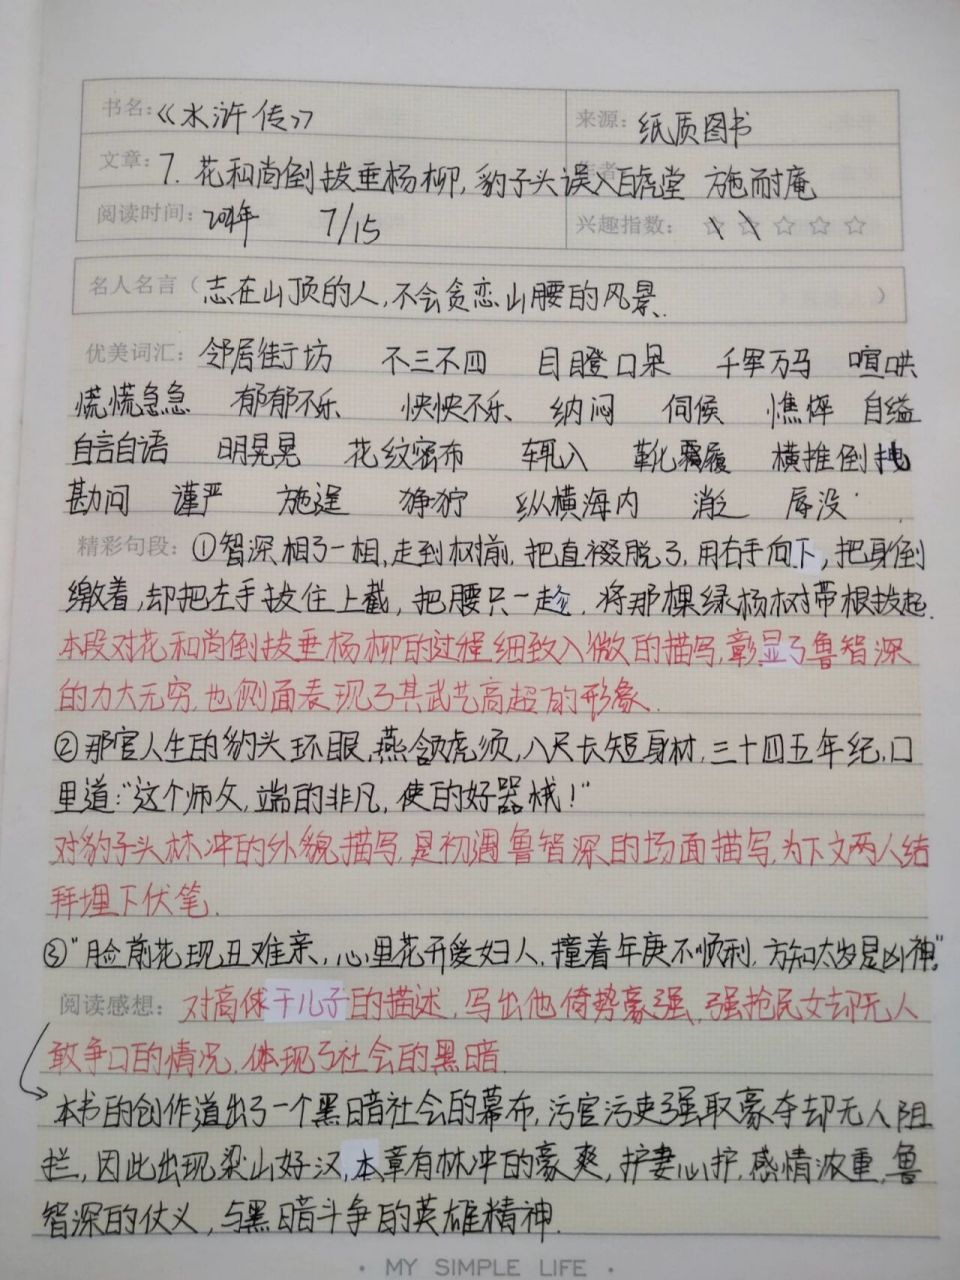 书名：《水浒传》 来源：纸质图书
文章：7. 花和尚倒拔垂杨柳，豹子头误入白虎堂 施耐庵
阅读时间： 7/15 兴趣指数：☆☆☆☆☆
名人名言（志在山顶的人，不会贪恋山腰的风景.）
优美词汇：邻居街坊 不三不四 目瞪口呆 千军万马 喧哄
慌慌急急 郁郁不乐 怏怏不乐 纳闷 伺候 憔悴 自缢
自言自语 明晃晃 花纹密布 辄入 靴履 横推倒拽
勘问 谨严 施逞 狰狞 纵横海内 消乏 辱没
精彩句段：①智深相了一相，走到树前，把直裰脱了，用右手向下，把身倒
缴着，却把左手拔住上截，把腰只一趁，将那棵绿杨树带根拔起.
本段对花和尚倒拔垂杨柳的过程细致入微的描写，彰显了鲁智深
的力大无穷，也侧面表现了其武艺高超的形象.
②那官人生的豹头环眼，燕颔虎须，八尺长短身材，三十四五年纪，口
里道：“这个师父，端的非凡，使的好器械！”
对豹子头林冲的外貌描写，是初遇鲁智深的场面描写，为下文两人结
拜埋下伏笔.
③“脸前花现丑难亲，心里花开爱妇人，撞着年庚不顺利，方知太岁是凶神.”
阅读感想：对高俅干儿子的描述，写出他倚势豪强，强抢民女却无人
敢争口的情况，体现了社会的黑暗.
本书的创作道出了一个黑暗社会的幕布，污官污吏强取豪夺却无人阻
拦，因此出现梁山好汉，本章有林冲的豪爽，护妻心护，感情浓重，鲁
智深的仗义，与黑暗斗争的英雄精神.
· MY SIMPLE LIFE ·